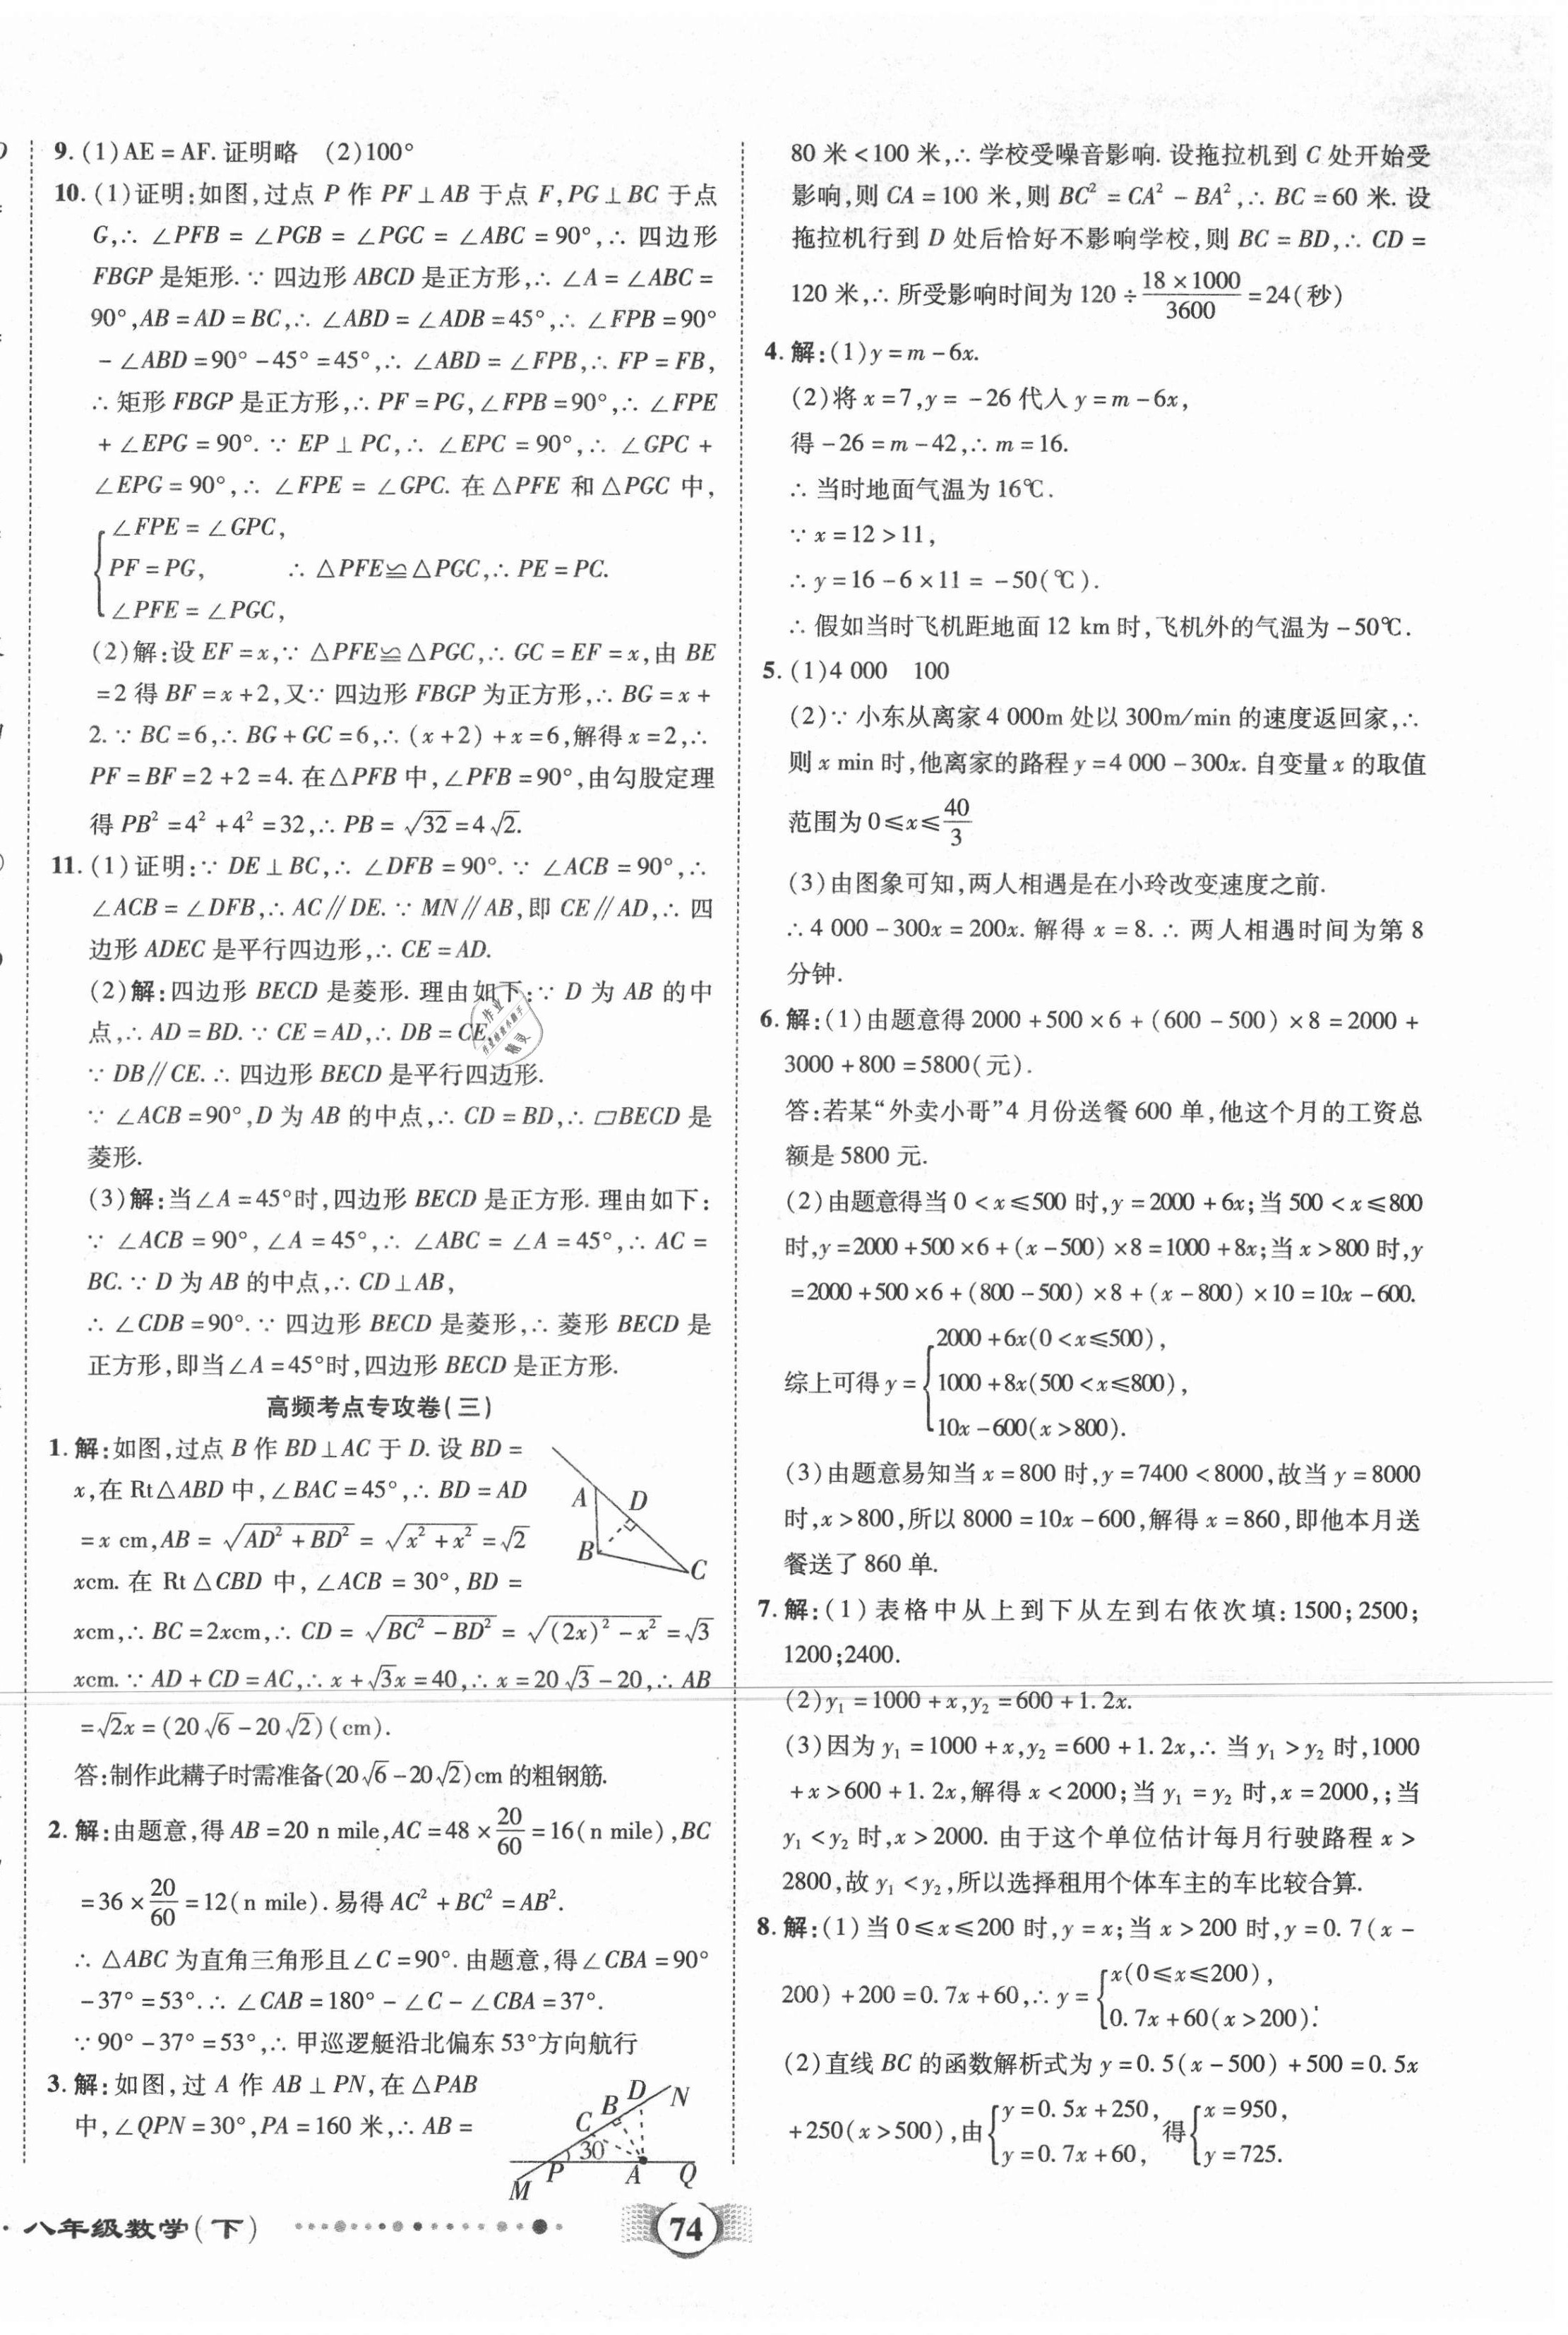 9. (1)AE=AF.证明略 (2)100°
10. (1)证明:如图,过点 P 作 PF⊥AB 于点 F,PG⊥BC 于点
G,∴ ∠PFB = ∠PGB = ∠PGC = ∠ABC = 90°,∴ 四边形
FBGP 是矩形.∵ 四边形 ABCD 是正方形,∴ ∠A = ∠ABC =
90°,AB=AD=BC,∴ ∠ABD = ∠ADB=45°,∴ ∠FPB=90°
-∠ABD=90°-45°=45°,∴ ∠ABD = ∠FPB,∴ FP=FB,
∴ 矩形 FBGP 是正方形,∴ PF=PG,∠FPB=90°,∴ ∠FPE
+∠EPG=90°.∵ EP⊥PC,∴ ∠EPC=90°,∴ ∠GPC+
∠EPG=90°,∴ ∠FPE = ∠GPC. 在△PFE 和△PGC 中,
∠FPE = ∠GPC,
PF=PG, ∴ △PFE≌△PGC,∴ PE=PC.
∠PFE = ∠PGC,
(2)解:设 EF=x,∵ △PFE≌△PGC,∴ GC=EF=x,由 BE
=2 得 BF=x+2,又∵ 四边形 FBGP 为正方形,∴ BG=x+
2.∵ BC=6,∴ BG+GC=6,∴ (x+2)+x=6,解得 x=2,∴
PF=BF=2+2=4. 在△PFB 中,∠PFB=90°,由勾股定理
得 PB²=4²+4²=32,∴ PB=√32=4√2.
11. (1)证明:∵ DE⊥BC,∴ ∠DFB=90°.∵ ∠ACB=90°,∴
∠ACB = ∠DFB,∴ AC∥DE.∵ MN∥AB,即 CE∥AD,∴ 四
边形 ADEC 是平行四边形,∴ CE=AD.
(2)解:四边形 BECD 是菱形. 理由如下:∵ D 为 AB 的中
点,∴ AD=BD.∵ CE=AD,∴ DB=CE,
∵ DB∥CE.∴ 四边形 BECD 是平行四边形.
∵ ∠ACB=90°,D 为 AB 的中点,∴ CD=BD,∴ ▱BECD 是
菱形.
(3)解:当∠A=45°时,四边形 BECD 是正方形. 理由如下:
∵ ∠ACB=90°,∠A=45°,∴ ∠ABC = ∠A=45°,∴ AC=
BC.∵ D 为 AB 的中点,∴ CD⊥AB,
∴ ∠CDB=90°.∵ 四边形 BECD 是菱形,∴ 菱形 BECD 是
正方形,即当∠A=45°时,四边形 BECD 是正方形.
高频考点专攻卷(三)
1. 解:如图,过点 B 作 BD⊥AC 于 D. 设 BD=
x,在 Rt△ABD 中,∠BAC=45°,∴ BD=AD
=x cm,AB=√(AD²+BD²)=√(x²+x²)=√2
xcm. 在 Rt△CBD 中,∠ACB=30°,BD=
xcm,∴ BC=2xcm,∴ CD=√(BC²-BD²)=√((2x)²-x²)=√3
xcm.∵ AD+CD=AC,∴ x+√3x=40,∴ x=20√3-20,∴ AB
=√2x=(20√6-20√2)(cm).
答:制作此耩子时需准备(20√6-20√2)cm 的粗钢筋.
A D
B C
2. 解:由题意,得 AB=20 n mile,AC=48×20/60=16(n mile),BC
=36×20/60=12(n mile).易得 AC²+BC²=AB².
∴ △ABC 为直角三角形且∠C=90°. 由题意,得∠CBA=90°
-37°=53°.∴ ∠CAB=180°-∠C-∠CBA=37°.
∵ 90°-37°=53°,∴ 甲巡逻艇沿北偏东 53°方向航行
3. 解:如图,过 A 作 AB⊥PN,在△PAB
中,∠QPN=30°,PA=160 米,∴ AB=
C B D N
30°
M P A Q
80 米<100 米,∴ 学校受噪音影响. 设拖拉机到 C 处开始受
影响,则 CA=100 米,则 BC²=CA²-BA²,∴ BC=60 米. 设
拖拉机行到 D 处后恰好不影响学校,则 BC=BD,∴ CD=
120 米,∴ 所受影响时间为 120÷(18×1000)/3600=24(秒)
4. 解:(1)y=m-6x.
(2)将 x=7,y=-26 代人 y=m-6x,
得-26=m-42,∴ m=16.
∴ 当时地面气温为 16℃.
∵ x=12>11,
∴ y=16-6×11=-50(℃).
∴ 假如当时飞机距地面 12 km 时,飞机外的气温为-50℃.
5. (1)4 000 100
(2)∵ 小东从离家 4 000m 处以 300m/min 的速度返回家,∴
则 x min 时,他离家的路程 y=4 000-300x. 自变量 x 的取值
范围为 0≤x≤40/3
(3)由图象可知,两人相遇是在小玲改变速度之前.
∴ 4 000-300x=200x. 解得 x=8.∴ 两人相遇时间为第 8
分钟.
6. 解:(1)由题意得 2000+500×6+(600-500)×8=2000+
3000+800=5800(元).
答:若某“外卖小哥”4 月份送餐 600 单,他这个月的工资总
额是 5800 元.
(2)由题意得当 0<x≤500 时,y=2000+6x;当 500<x≤800
时,y=2000+500×6+(x-500)×8=1000+8x;当 x>800 时,y
=2000+500×6+(800-500)×8+(x-800)×10=10x-600.
2000+6x(0<x≤500),
综上可得 y= 1000+8x(500<x≤800),
10x-600(x>800).
(3)由题意易知当 x=800 时,y=7400<8000,故当 y=8000
时,x>800,所以 8000=10x-600,解得 x=860,即他本月送
餐送了 860 单.
7. 解:(1)表格中从上到下从左到右依次填:1500;2500;
1200;2400.
(2)y₁=1000+x,y₂=600+1.2x.
(3)因为 y₁=1000+x,y₂=600+1.2x,∴ 当 y₁>y₂ 时,1000
+x>600+1.2x,解得 x<2000;当 y₁=y₂ 时,x=2000,;当
y₁<y₂ 时,x>2000. 由于这个单位估计每月行驶路程 x>
2800,故 y₁<y₂,所以选择租用个体车主的车比较合算.
8. 解:(1)当 0≤x≤200 时,y=x;当 x>200 时,y=0.7(x-
200)+200=0.7x+60,∴ y={x(0≤x≤200), 0.7x+60(x>200).
(2)直线 BC 的函数解析式为 y=0.5(x-500)+500=0.5x
+250(x>500),由{y=0.5x+250, y=0.7x+60, 得{x=950, y=725.
· 八年级数学(下)
74